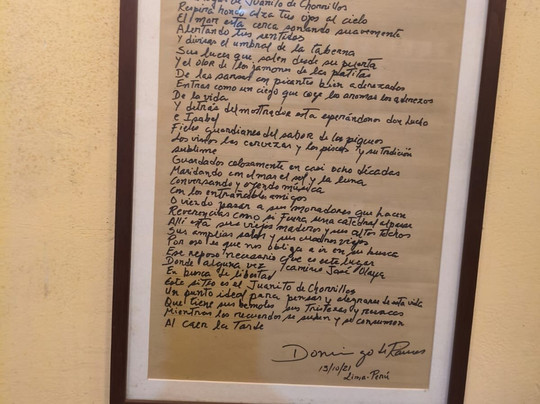 de Juanito de Chorrillos
Respira hondo alza tus ojos al cielo
El mar esta cerca sonando suavemente
Alentando tus sentidos
Y divisas el umbral de la taberna
Sus luces que salen desde su puerta
Y el olor de los jamones de la platitas
De las sarsas con picantes bien aderezados
Entras como un ciego que coge los aromas los aderezos
De la vida
Y detrás del mostrador esta esperándonos don Lucho
e Isabel
Fieles guardianes del sabor de los piqueos
Los vinos las cervezas y los piscos y su tradición
sublime
Guardados celosamente en casi ocho décadas
Maridando con el mar el sol y la luna
Conversando y oyendo música
Con lo entrañables amigos
O viendo pasar a sus moradores que hacen
Reverencias como si fuera una catedral al pasar
Allí esta sus viejos maderos y sus altos techos
Sus amplias salas y sus cuadros viejos
Por eso es que nos obliga a ir en su busca
Ese reposo necesario que es este lugar
Donde alguna vez camino José Olaya
En busca de libertad
Este sitio es el Juanito de Chorrillos
Un punto ideal para pensar y alegrarse de esta vida
Que tiene sus bemoles sus tristezas y
Mientras los recuerdos se suben y se consumen
Al caer la Tarde
Domingo de Ramos
13/10/21
Lima-Perú